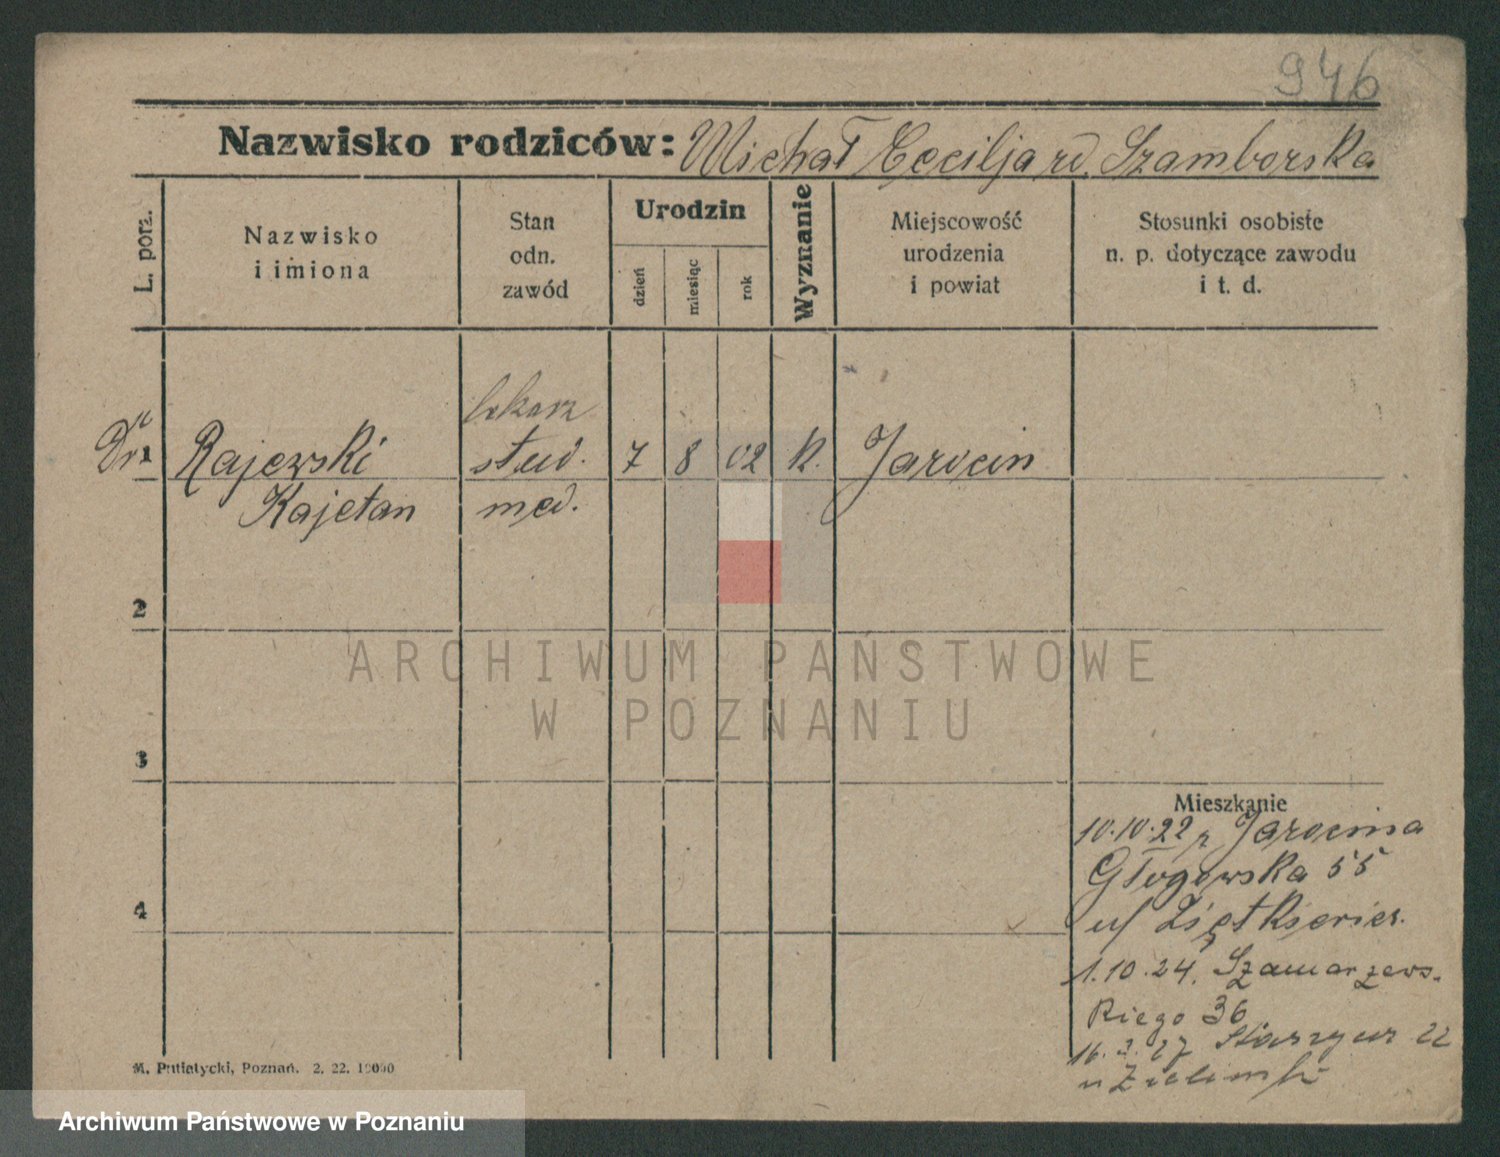 946
Nazwisko rodziców: Michał Cecilja rd. Szamborska
L. porz.
Nazwisko
i imiona
Stan
odn.
zawód
Urodzin
dzień
miesiąc
rok
Wyznanie
Miejscowość
urodzenia
i powiat
Stosunki osobiste
n. p. dotyczące zawodu
i t. d.
lekarz
Dr 1 Rajewski stud. 7 8 02 K. Jarocin
Kajetan med.
2
3
4
Mieszkanie
10.10.22 z Jarocina
Głogowska 55
u/
1.10.24. Szamarzews-
kiego 36
16. 27 22
u
M. Putiatycki, Poznań. 2. 22. 10000
ARCHIWUM PAŃSTWOWE
W POZNANIU
Archiwum Państwowe w Poznaniu